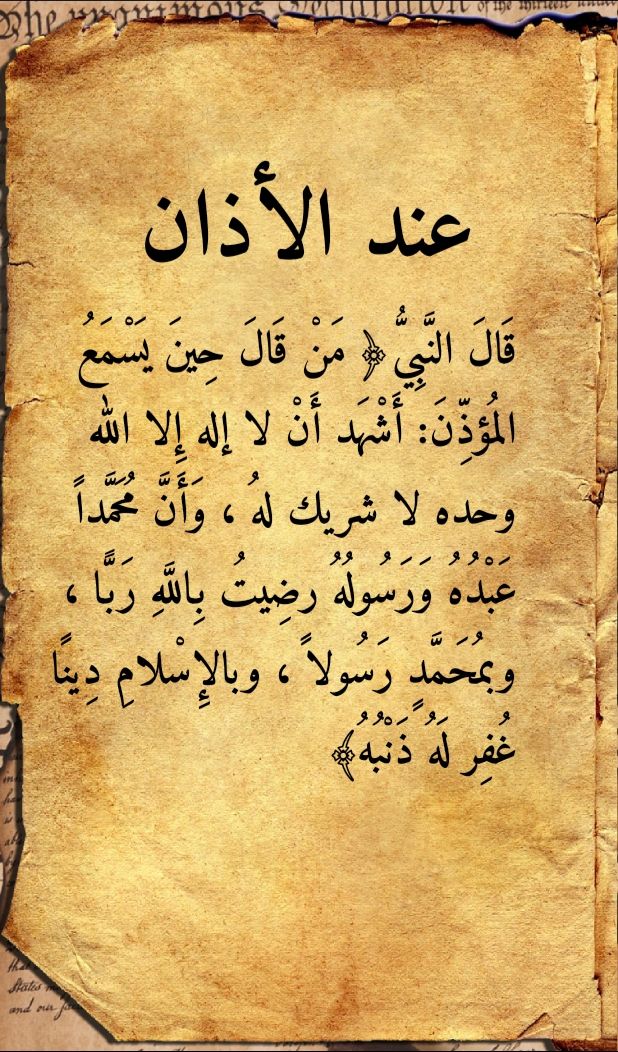 The unanimous Declaration of the thirteen united
عند الأذان
قَالَ النَّبِيُّ ﴿ مَنْ قَالَ حِينَ يَسْمَعُ
المُؤذِّنَ: أَشْهَد أَنْ لا إله إِلا الله
وحده لا شريك لهُ ، وَأَنَّ مُحَمَّداً
عَبْدُهُ وَرَسُولُهُ رضِيتُ بِاللَّهِ رَبًّا ،
وبمُحَمَّدٍ رَسُولاً ، وبالإِسْلامِ دِينًا
غُفِر لَهُ ذَنْبُهُ﴾
States
and our